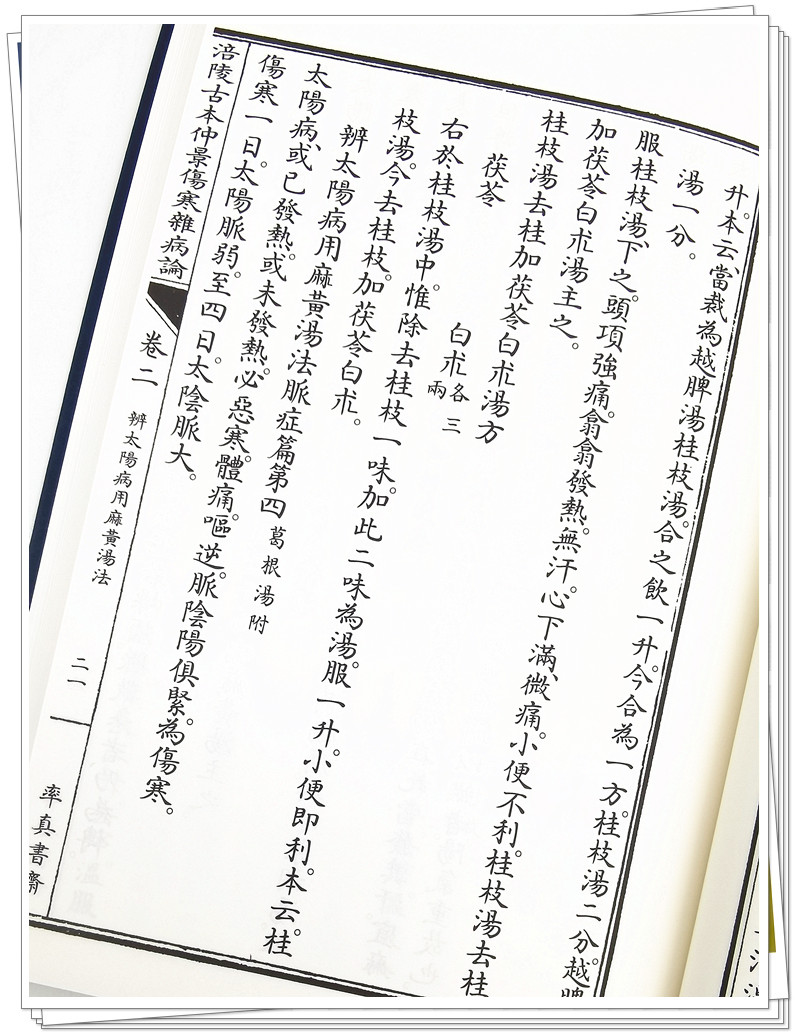 升。本云、當裁為越脾湯桂枝湯。合之飲一升。今合為一方。桂枝湯二分。越脾
湯一分。
服桂枝湯、下之。頭項強痛。翕翕發熱。無汗。心下滿、微痛。小便不利。桂枝湯去桂
加茯苓白朮湯主之。
桂枝湯去桂加茯苓白朮湯方
茯苓 白朮各三兩
右於桂枝湯中。惟除去桂枝一味。加此二味為湯。服一升。小便即利。本云、桂
枝湯。今去桂枝。加茯苓白朮。
辨太陽病用麻黃湯法脈症篇第四 葛根湯附
太陽病、或已發熱。或未發熱。必惡寒。體痛。嘔逆。脈陰陽俱緊。為傷寒。
傷寒一日。太陽脈弱。至四日。太陰脈大。
涪陵古本仲景傷寒雜病論 卷二 辨太陽病用麻黃湯法 二一 率真書齋